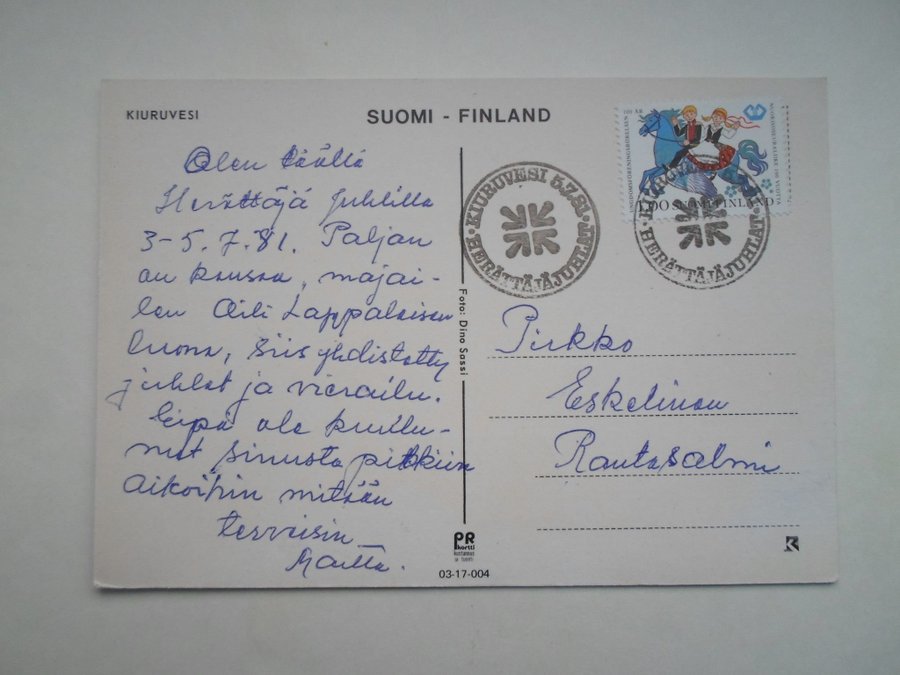 KIURUVESI
SUOMI - FINLAND
Olen täällä
Herättäjä Juhlilla
3-5.7.81. Paljon
on kansaa, majai-
len Aili Lappalaisen
luona, siis yhdistetty
juhlat ja vierailu.
Eipä ole kuulu-
nut Sinusta pitkiin
aikoihin mitään
terveisin
Martta.
Foto: Dino Sassi
KIURUVESI 5.7.81.
HERÄTTÄJÄJUHLAT
1,00 SUOMI FINLAND
NUORISOSEURALIIKE 100 VUOTTA
HERÄTTÄJÄJUHLAT
Pirkko
Eskelinen
Rantasalmi
PR
kortti
kustannus
03-17-004